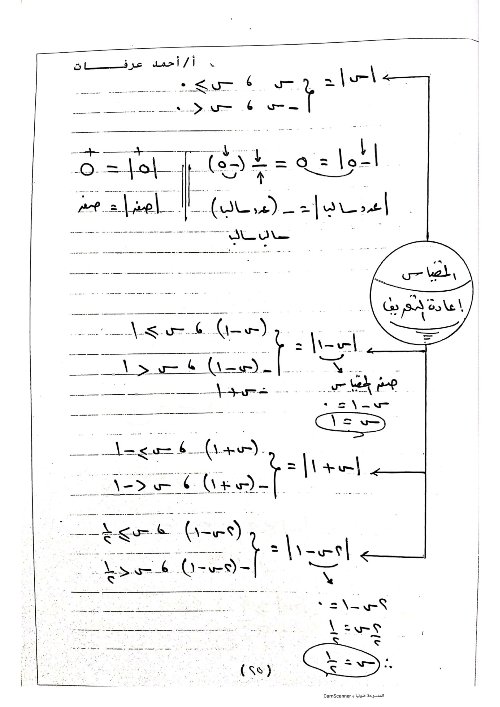 أ/أحمد عرفات
|س| = { س ، س ≥ ٠
-س ، س < ٠
|-٥| = ٥ = -(-٥)
|٥| = ٥
|عدد سالب| = -(عدد سالب)
|صفر| = صفر
سالب سالب
المقياس
إعادة التعريف
|س-١| = { (س-١) ، س ≥ ١
-(س-١) ، س < ١
-س+١
صفر المقياس
س-١=٠
س=١
|س+١| = { (س+١) ، س ≥ -١
-(س+١) ، س < -١
|٢س-١| = { (٢س-١) ، س ≥ ١/٢
-(٢س-١) ، س < ١/٢
٢س-١=٠
٢س/٢ = ١/٢
∴ س = ١/٢
(٢٥)
الممسوحة ضوئيا بـ CamScanner